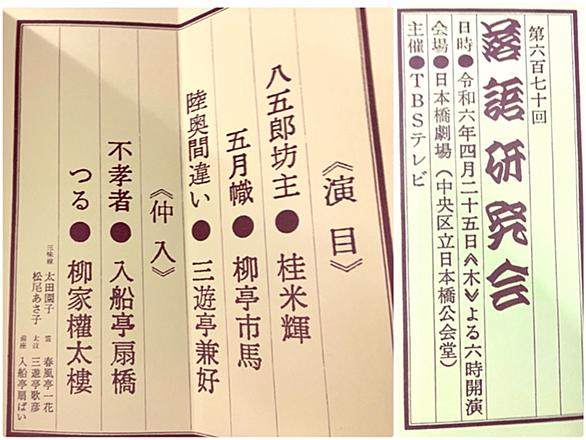 第六百七十回
落語研究会
日時●令和六年四月二十五日《木》よる六時開演
会場●日本橋劇場（中央区立日本橋公会堂）
主催●TBSテレビ
《演目》
八五郎坊主●桂米輝
五月幟●柳亭市馬
陸奥間違い●三遊亭兼好
《仲入》
不孝者●入船亭扇橋
つる●柳家權太樓
三味線 太田園子
松尾あさ子
笛 春風亭一花
太鼓 三遊亭歌彦
前座 入船亭扇ぱい